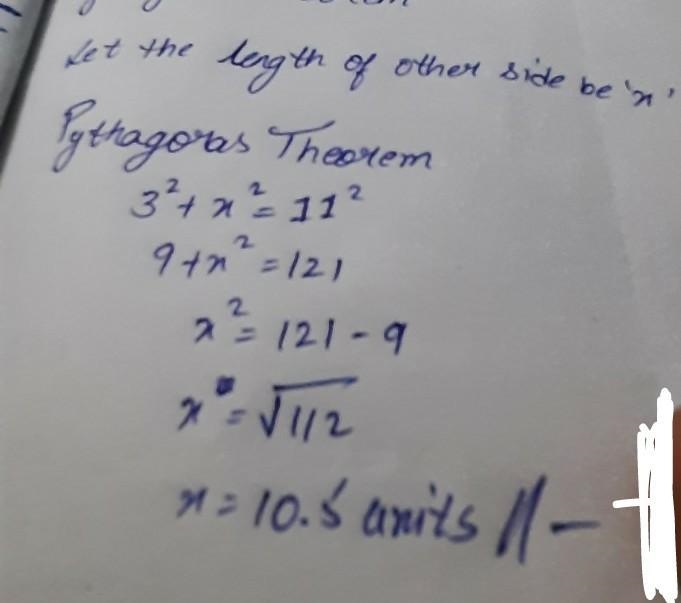 Let the length of other side be 'x'
Pythagoras Theorem
3² + x² = 11²
9 + x² = 121
x² = 121 - 9
x = √112
x = 10.5 units //-